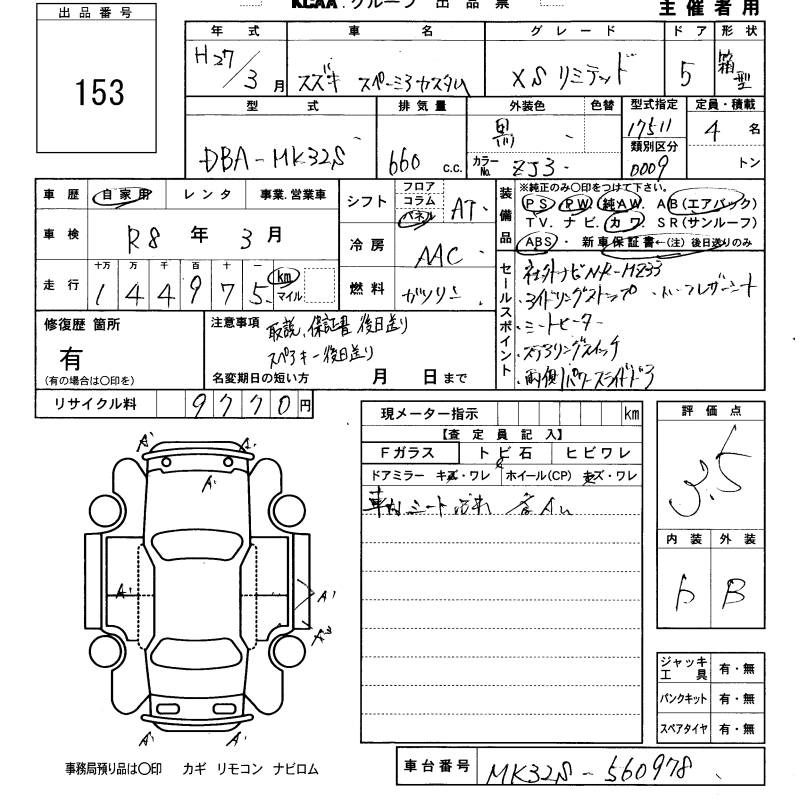 KCAA グループ 出品票
主催者用
出品番号
153
年式 車名 グレード ドア 形状
H27/3月 スズキ スペーシアカスタム XSリミテッド 5 箱型
型式 排気量 外装色 色替 型式指定 定員・積載
DBA-MK32S 660 c.c. 黒 17511 4名
カラーNo. ZJ3 類別区分 0009 トン
車歴 自家用 レンタ 事業.営業車
車検 R8年3月
走行 十万 万 千 百 十 一 km マイル
1 4 4 9 7 5
シフト フロア コラム パネル AT
冷房 AAC
燃料 ガソリン
装備品
※純正のみ○印をつけて下さい。
PS PW 純AW. AB(エアバック)
TV. ナビ. カワ. SR(サンルーフ)
ABS・新車保証書←(注)後日送りのみ
セールスポイント
社外ナビNR-MZ33
・アイドリングストップ ・ハーフレザーシート
・シートヒーター
・ステアリングスイッチ
・両側パワースライドドア
修復歴 箇所
有
(有の場合は○印を)
注意事項 取説、保証書後日送り
スペアキー後日送り
名変期日の短い方 月 日まで
リサイクル料 9770円
現メーター指示 km
【査定員記入】
Fガラス トビ石 ヒビワレ
ドアミラー キズ・ワレ ホイール(CP) キズ・ワレ
車内シート汚れ
評価点
3.5
内装 外装
B
A' A'
A'
A' A'
A' A'
ジャッキ工具 有・無
パンクキット 有・無
スペアタイヤ 有・無
事務局預り品は○印 カギ リモコン ナビロム
車台番号 MK32S-560978